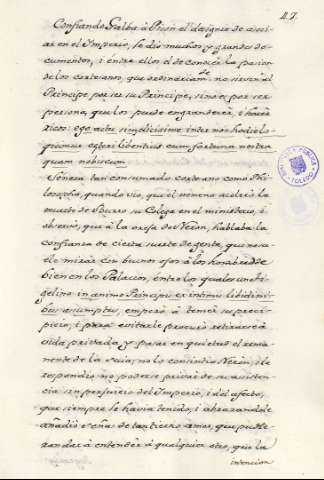 47.
Confiando Galba à Pison el designio de asociar
ar en el Imperio, le dio muchos, y grandes do-
cumentos, i entre ellos el de conocer la pasion
de los cortesanos, que ordinariam.te no sirven al
Principe por ser su Principe, sino por ser
persona, que los puede engrandecer, i hacer
ricos: ego, ac tu simplicissime inter nos hodie lo-
quimur, ceteri libentius cum fortuna nostra
quam nobiscum.
Séneca tan consumado cortesano como Phi-
losopho, quando vio, que el veneno aceleró la
muerte de Burro su Colega en el ministerio, i
observó, que à la oreja de Neron, hablaba la
confianza de cierta suerte de gente, que no sue-
le mirar con buenos ojos à los hombres de
bien en los Palacios, entre los quales uno Ti-
gelino in animo Principis ex intimis libidini-
bus assumptus, empezó à temer su preci-
picio, i para evitarle procuró retirarse à
vida privada, y pasar en quietud el rema-
nente de la suia; no lo consintio Neron, i le
respondió no poderse privar de su asisten-
cia sin perjuicio del Imperio, i del afecto,
que siempre le havia tenido, i abrazandole
añadió señas de tan tierno amor, que pudie-
ran dar à entender à qualquier otro, que la
intencion
BIBLIOTECA PUBLICA
TOLEDO